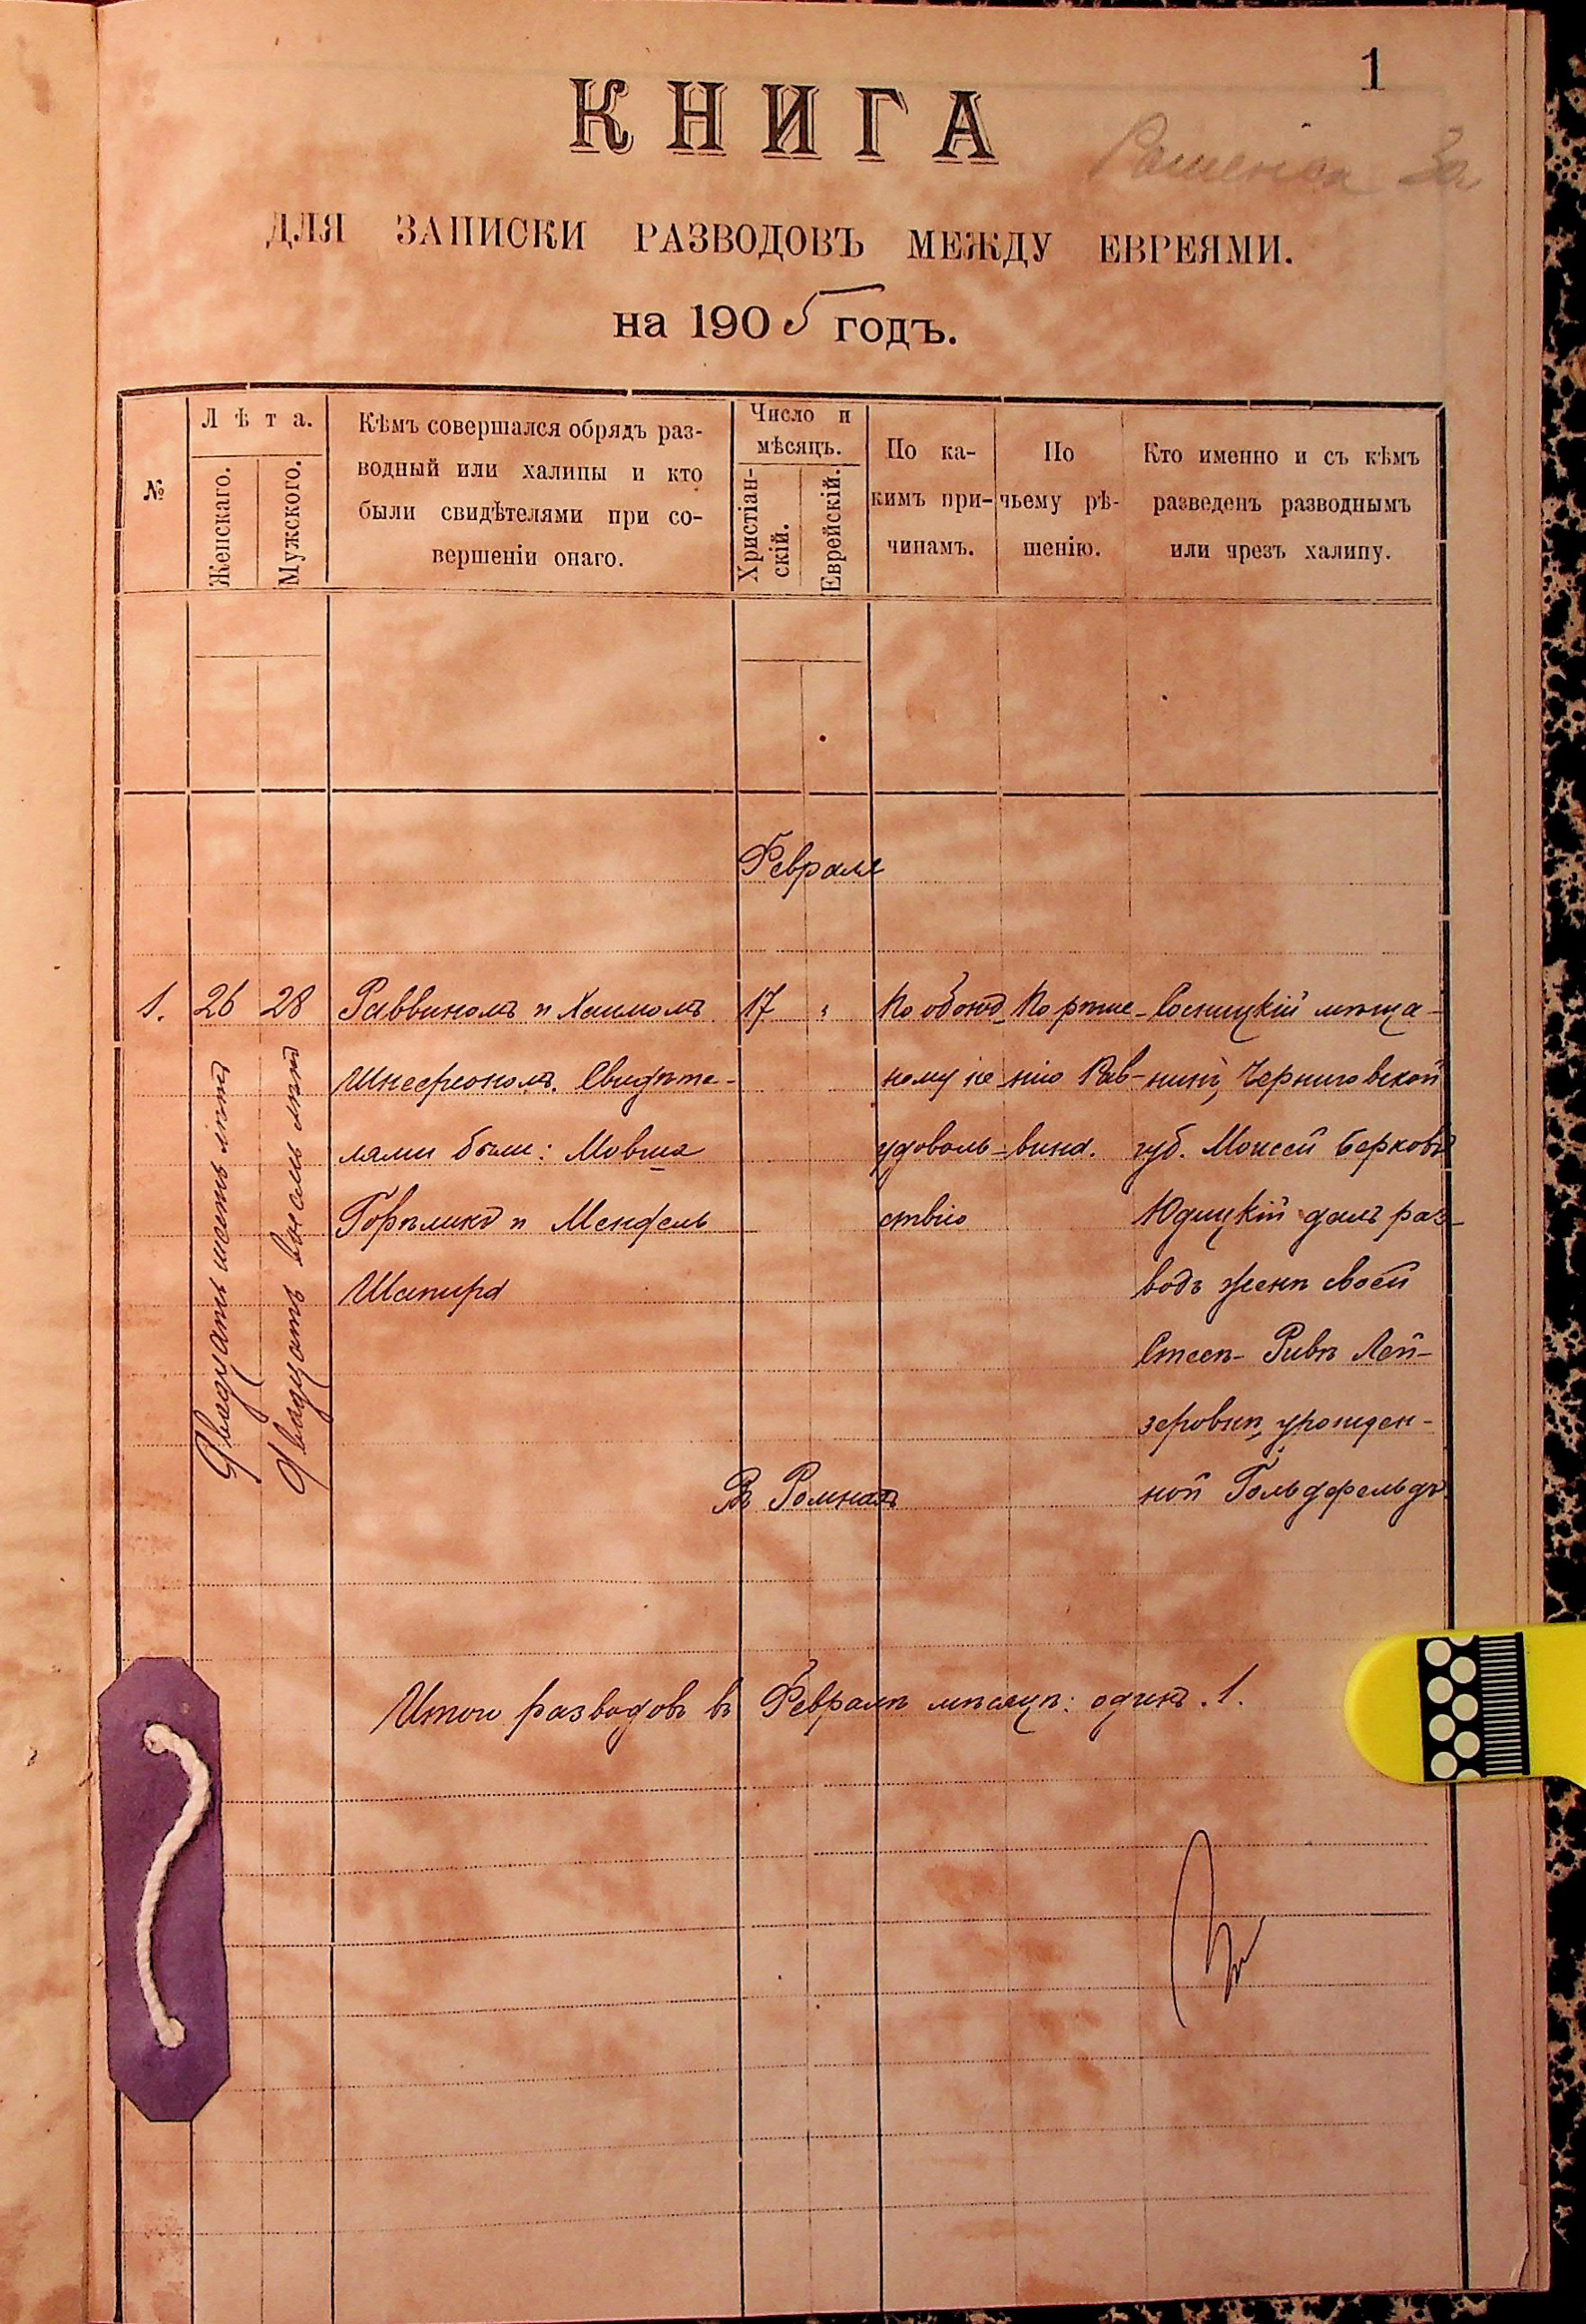 1
КНИГА
ДЛЯ ЗАПИСКИ РАЗВОДОВЪ МЕЖДУ ЕВРЕЯМИ.
на 1905 годъ.
№
Лѣта.
Женскаго.
Мужского.
Кѣмъ совершался обрядъ раз-
водный или халицы и кто
были свидѣтелями при со-
вершеніи онаго.
Число и
мѣсяцъ.
Христіан-
скій.
Еврейскій.
По ка-
кимъ при-
чинамъ.
По
чьему рѣ-
шенію.
Кто именно и съ кѣмъ
разведенъ разводнымъ
или чрезъ халицу.
Февраля
1.
26
Двадцать шесть лѣтъ
28
Двадцать восемь лѣтъ
Раввиномъ Хаимомъ
Шнеерсономъ. Свидѣте-
лями были: Мовша
Горѣликъ и Мендель
Шапиро
17
"
По обоюд-
ному не
удоволь-
ствію
По рѣше-
нію Рав-
вина.
Сосницкій мѣща-
нинъ, Черниговской
губ. Моисей Берковъ
Юдицкій далъ раз-
водъ женѣ своей
Стеѣ-Ривѣ Лей-
зеровнѣ, урожден-
ной Гольдфельдъ.
Въ Ромнахъ
Итого разводовъ въ Февралѣ мѣсяцѣ: одинъ. 1.